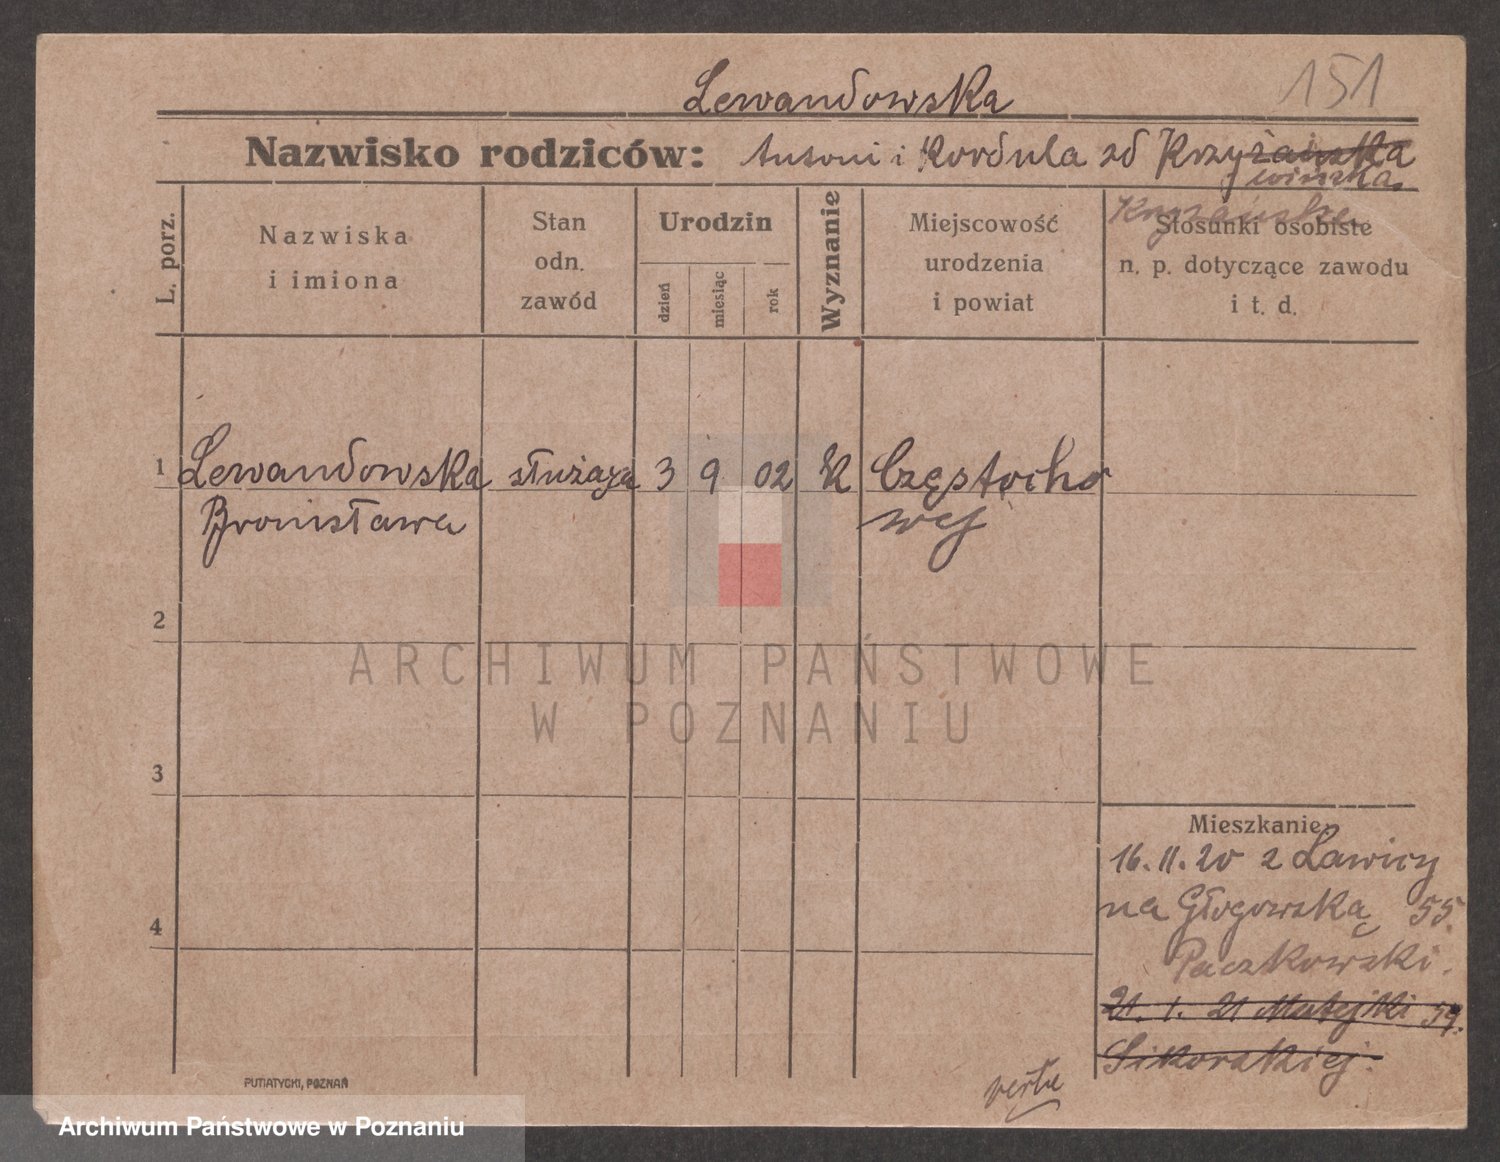 151
Lewandowska
Nazwisko rodziców: Antoni i Kordula zd Krzyżańska
wińska
Krzyżańska
L. porz.
Nazwiska
i imiona
Stan
odn.
zawód
Urodzin
dzień
miesiąc
rok
Wyznanie
Miejscowość
urodzenia
i powiat
Stosunki osobiste
n. p. dotyczące zawodu
i t. d.
1 Lewandowska służąca 3 9 02 K Częstocho
Bronisława wej
2
3
4
Mieszkanie:
16.11.20 z Ławicy
na Głogowską 55.
Paczkowski.
21. 1. 21 Matejki 59.
Sikorskiej.
verte
PUTIATYCKI, POZNAŃ
ARCHIWUM PAŃSTWOWE
W POZNANIU
Archiwum Państwowe w Poznaniu